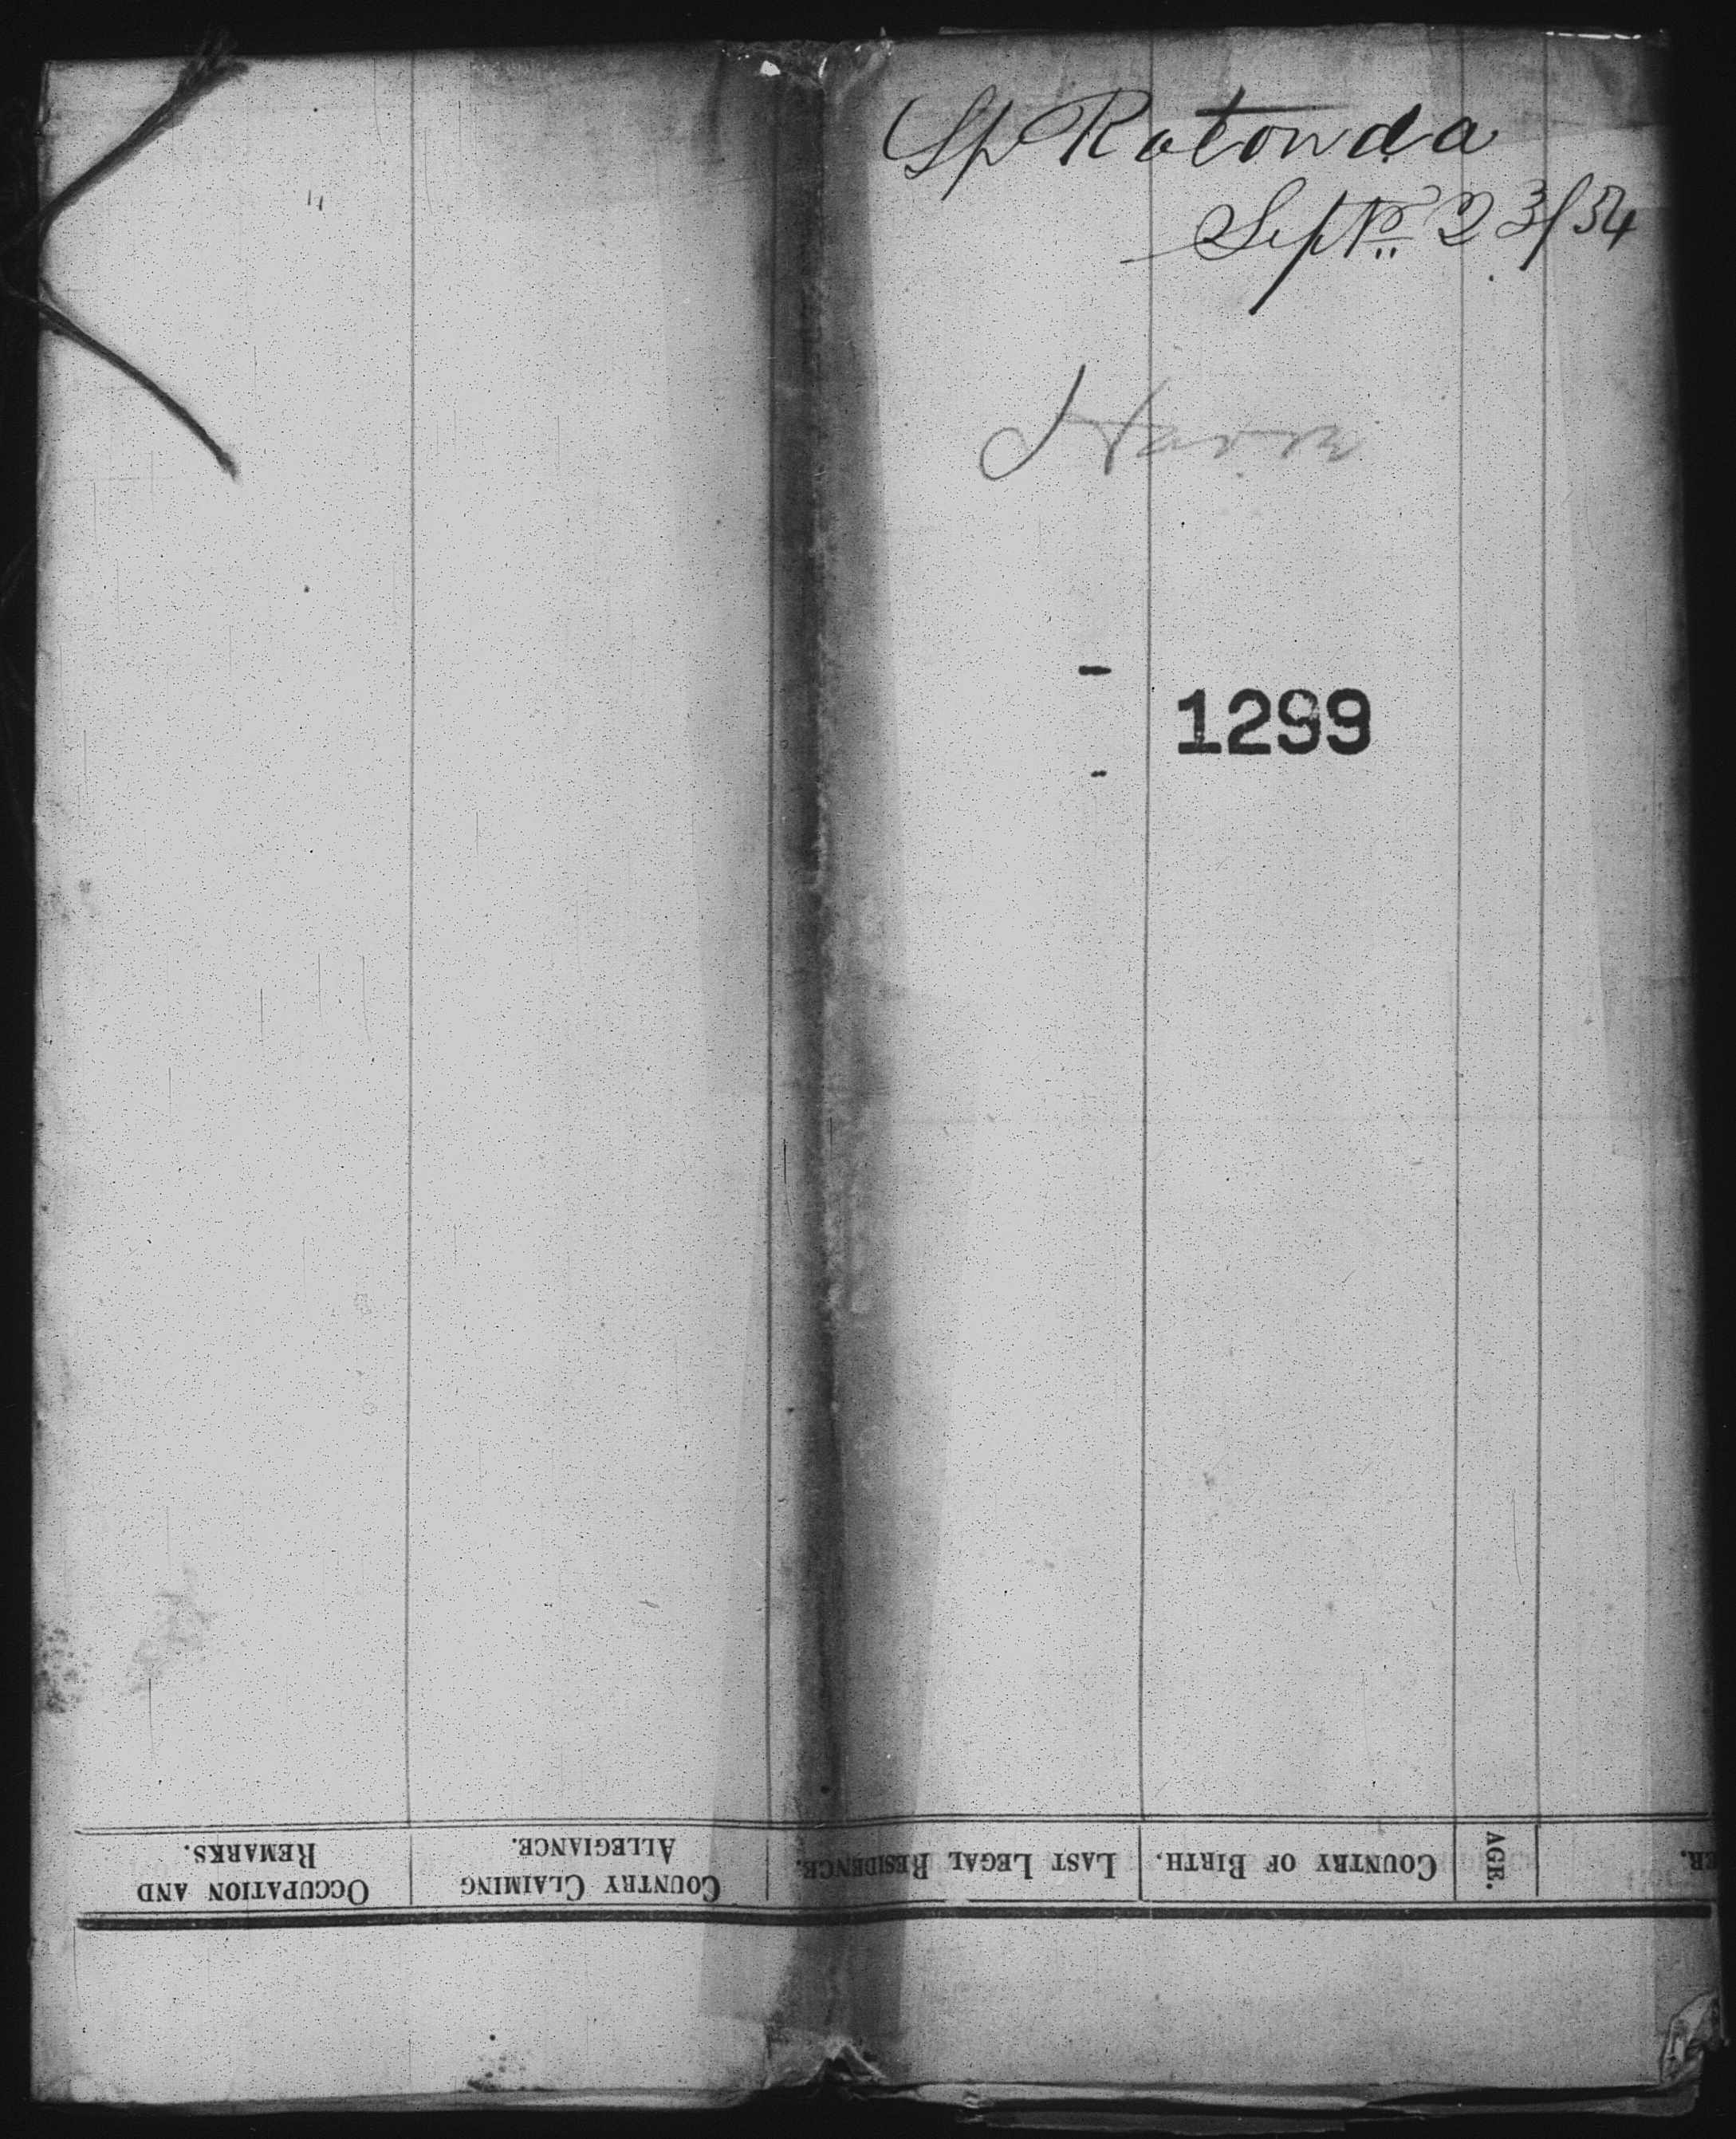 Sp Rotonda
Septr. 23/54
Havre
1299
OCCUPATION AND
REMARKS.
COUNTRY CLAIMING
ALLEGIANCE.
LAST LEGAL RESIDENCE.
COUNTRY OF BIRTH.
AGE.